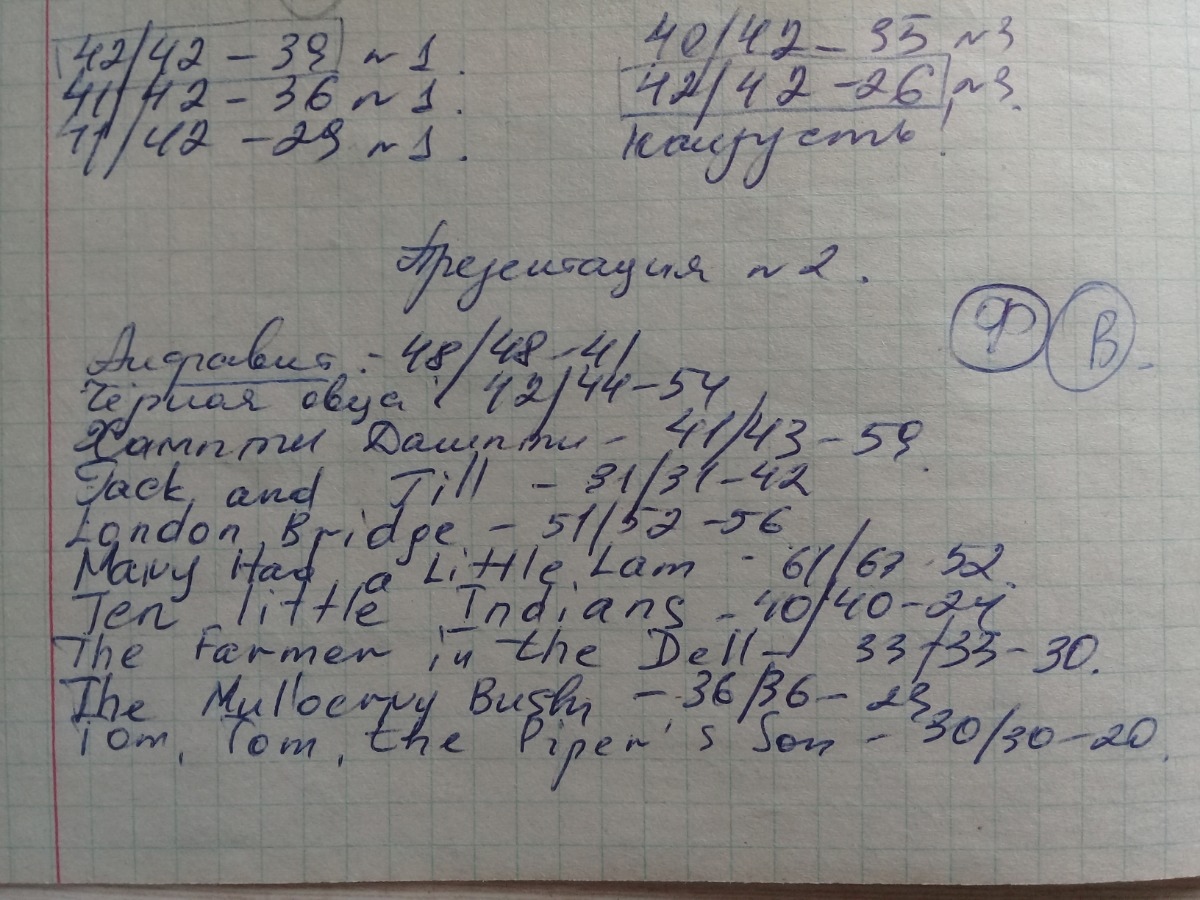 42/42 - 39 №1.
41/42 - 36 №1.
41/42 - 29 №1.
40/42 - 35 №3
42/42 - 26 №3.
наизусть!
Презентация №2.
Ф В.
Алфавит - 48/48 - 41
Чёрная овца 42/44 - 54
Хампти Дампти - 41/43 - 59.
Jack and Jill - 31/31 - 42
London Bridge - 51/52 - 56
Mary Had a Little Lam - 61/67 - 52.
Ten little Indians - 40/40 - 24
The Farmer in the Dell - 33/33 - 30.
The Mullberry Bush - 36/36 - 29
Tom, Tom, the Piper's Son - 30/30 - 20.